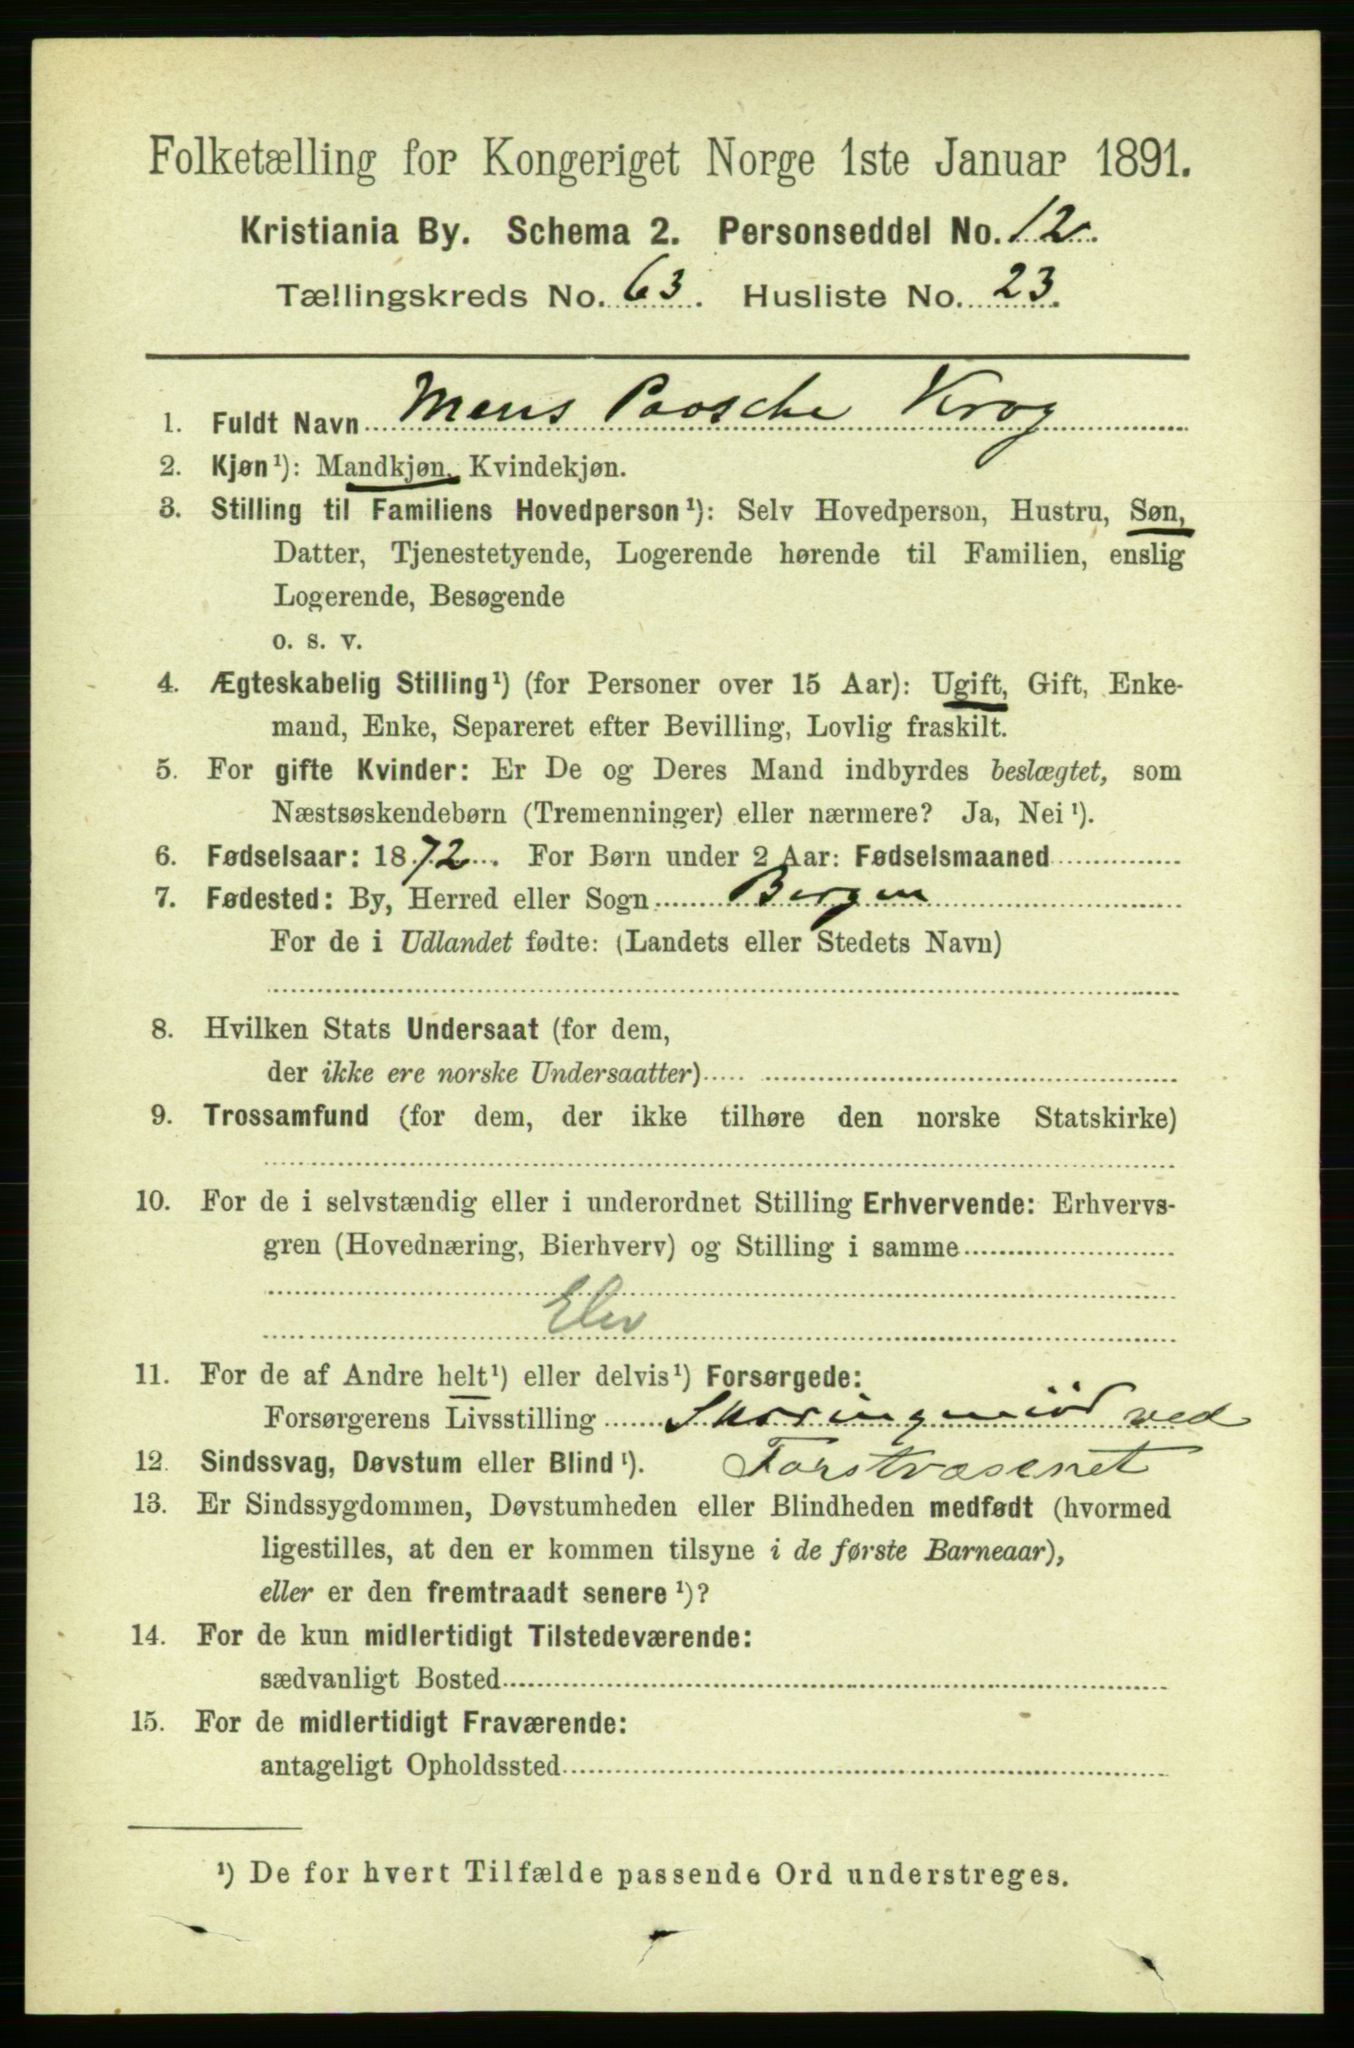 Folketælling for Kongeriget Norge 1ste Januar 1891.
Kristiania By. Schema 2. Personseddel No. 12.
Tællingskreds No. 63. Husliste No. 23.
1. Fuldt Navn Mens Paasche Krog
2. Kjøn¹): Mandkjøn, Kvindekjøn.
3. Stilling til Familiens Hovedperson¹): Selv Hovedperson, Hustru, Søn,
Datter, Tjenestetyende, Logerende hørende til Familien, enslig
Logerende, Besøgende
o. s. v.
4. Ægteskabelig Stilling¹) (for Personer over 15 Aar): Ugift, Gift, Enke-
mand, Enke, Separeret efter Bevilling, Lovlig fraskilt.
5. For gifte Kvinder: Er De og Deres Mand indbyrdes beslægtet, som
Næstsøskendebørn (Tremenninger) eller nærmere? Ja, Nei¹).
6. Fødselsaar: 1872. For Børn under 2 Aar: Fødselsmaaned
7. Fødested: By, Herred eller Sogn Bergen
For de i Udlandet fødte: (Landets eller Stedets Navn)
8. Hvilken Stats Undersaat (for dem,
der ikke ere norske Undersaatter)
9. Trossamfund (for dem, der ikke tilhøre den norske Statskirke)
10. For de i selvstændig eller i underordnet Stilling Erhvervende: Erhvervs-
gren (Hovednæring, Bierhverv) og Stilling i samme
Elev
11. For de af Andre helt¹) eller delvis¹) Forsørgede:
Forsørgerens Livsstilling ved
12. Sindssvag, Døvstum eller Blind¹). Forstvæsenet
13. Er Sindssygdommen, Døvstumheden eller Blindheden medfødt (hvormed
ligestilles, at den er kommen tilsyne i de første Barneaar),
eller er den fremtraadt senere¹)?
14. For de kun midlertidigt Tilstedeværende:
sædvanligt Bosted
15. For de midlertidigt Fraværende:
antageligt Opholdssted
¹) De for hvert Tilfælde passende Ord understreges.